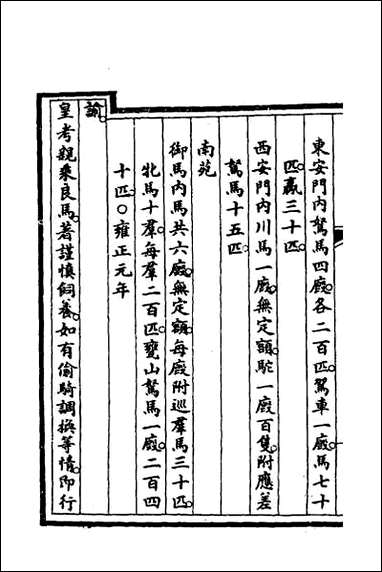 東安門内駑馬四廄各二百匹駕車一廄馬七十
匹驘三十匹
西安門内川馬一廄無定額駝一廄百隻附應差
駑馬十五匹
南苑
御馬内馬共六廄無定額每廄附巡羣馬三十匹
牝馬十羣每羣二百匹甕山駑馬一廄二百四
十匹○雍正元年
諭
皇考親乗良馬著謹慎飼養如有偷騎調換等情即行